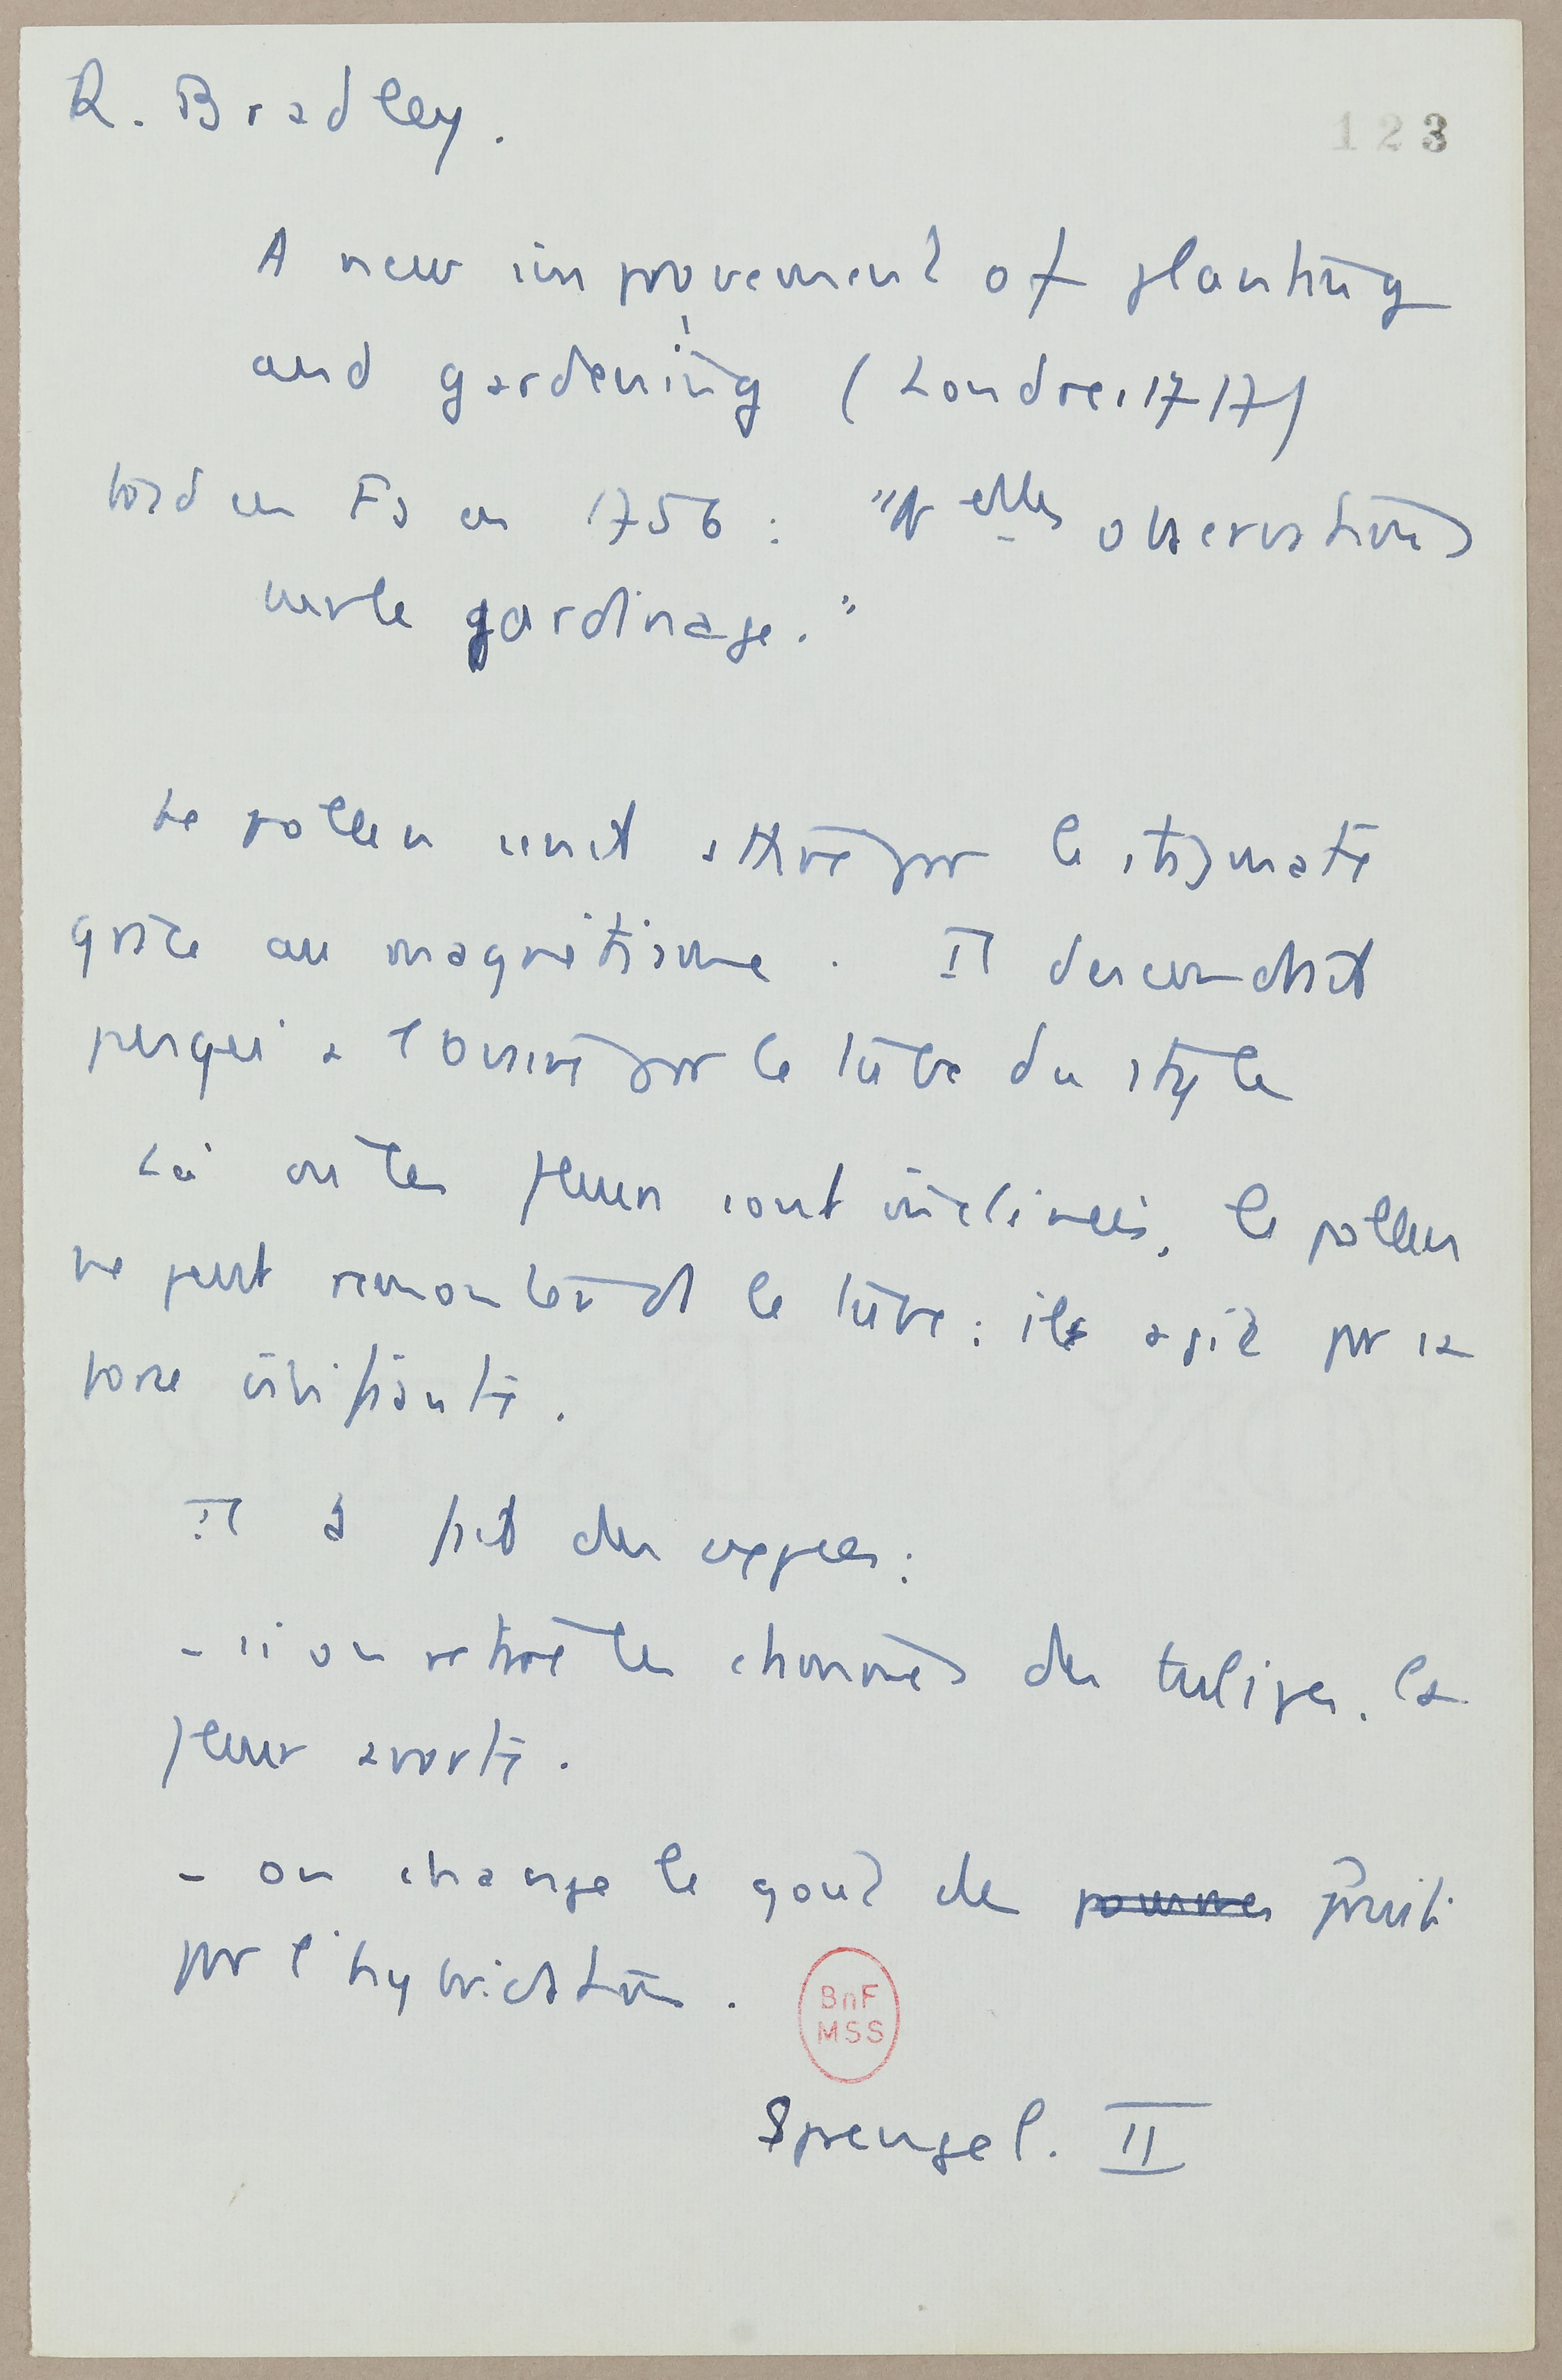 R. Bradley.
123
A new improvement of planting
and gardening (Londres 1717)
trad en Fs en 1756 : "Nelles observations
sur le gardinage."
Le pollen serait attiré par le stigmate
grâce au magnétisme. Il descendrait
jusqu'à l'ovaire par le tube du style
Là où les fleurs sont inclinées, le pollen
ne peut remonter le tube : il agit par sa
force vivifiante.
Il a fait des exper :
- si on retire les étamines des tulipes, la
fleur avorte.
- on change le goût de pommes fruits
par l'hybridation.
BnF
MSS
Sprengel. II